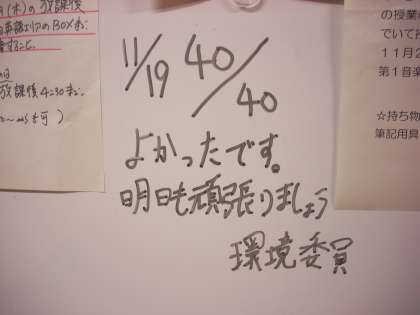 11/19 40/40
よかったです。
明日も頑張りましょう
環境委員
(木)の放課後
英語エリアのBOXまで
放課後4:30まで
の授業
でいて
11月2
第1音楽
☆持ち物
筆記用具